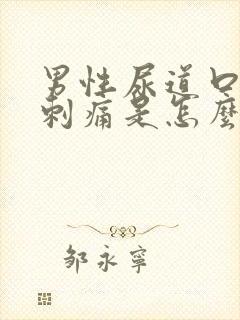 男性尿道口
刺痛是怎麼
邹永寧